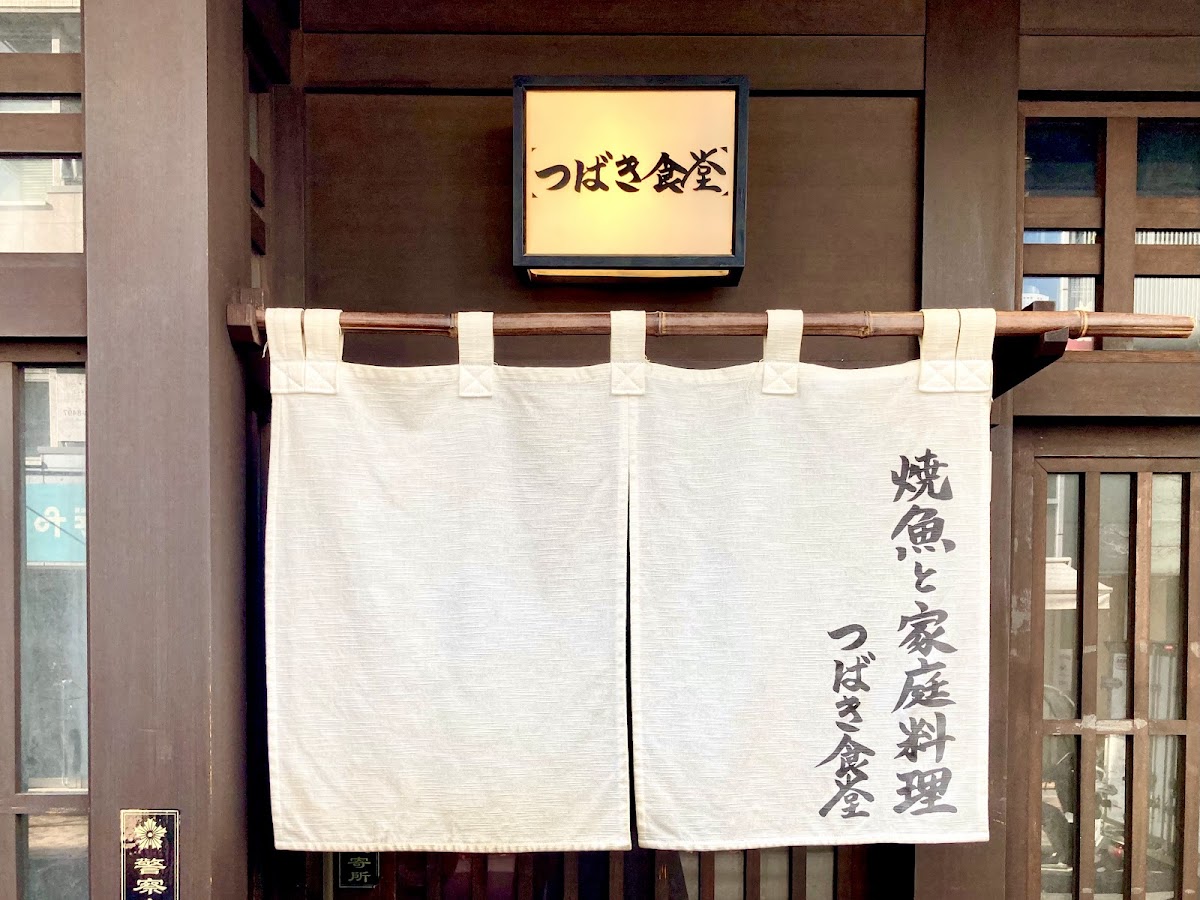 つばき食堂
焼魚と家庭料理
つばき食堂
警察
寄所